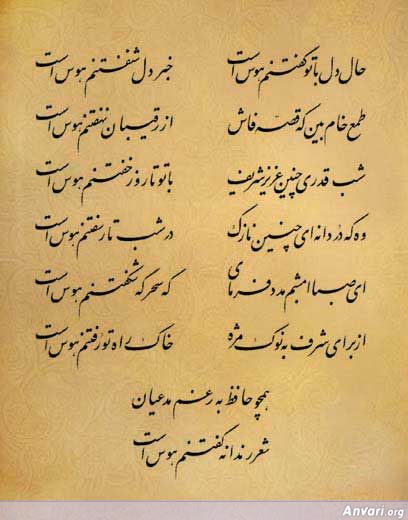 حال دل با تو گفتنم هوس است خبر دل شنفتنم هوس است
طمع خام بین که قصه فاش از رقیبان نهفتنم هوس است
شب قدری چنین عزیز شریف با تو تا روز خفتنم هوس است
وه که دردانه‌ای چنین نازک در شب تار سفتنم هوس است
ای صبا امشبم مدد فرمای که سحرگه شکفتنم هوس است
از برای شرف به نوک مژه خاک راه تو رفتنم هوس است
همچو حافظ به رغم مدعیان
شعر رندانه گفتنم هوس است
Anvari.org